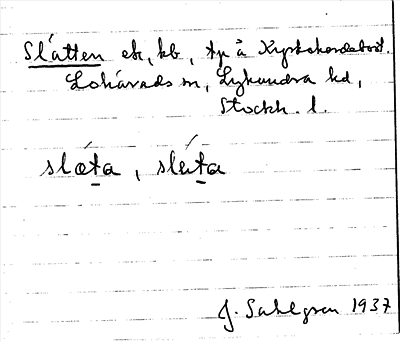 Slåtten ek, kb, tp å Kyrkskordabost.
Lohärads sn, Lyhundra hd,
Stockh. l.
slœta, sleta
J. Sahlgren 1937